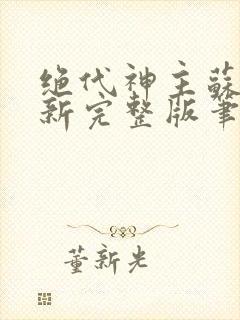 绝代神主蘇
新完整版筆
董新光